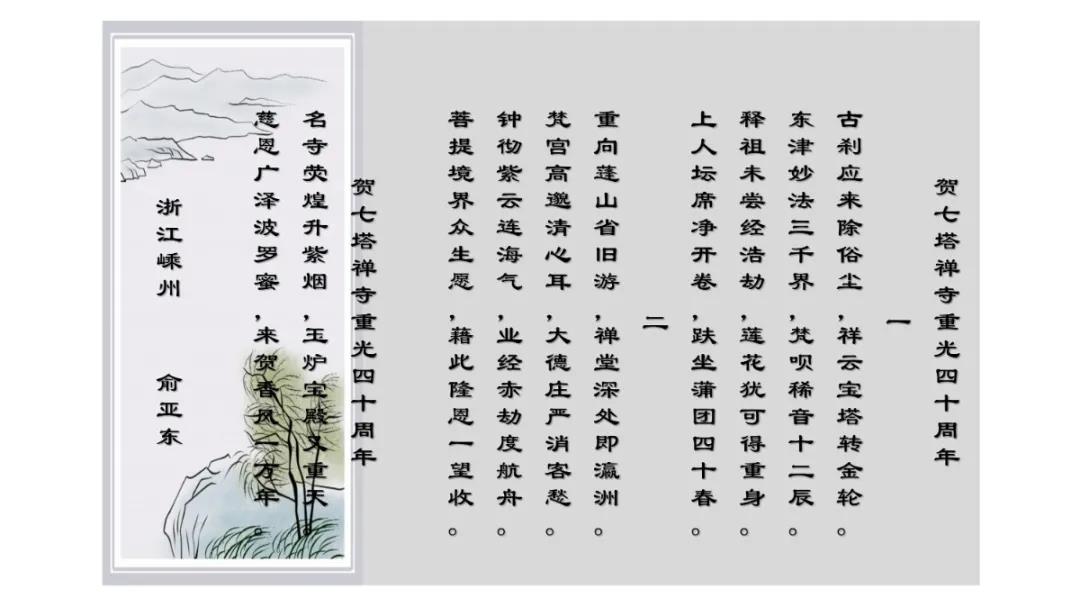 贺七塔禅寺重光四十周年
一
古刹应来除俗尘，祥云宝塔转金轮。
东津妙法三千界，梵呗稀音十二辰。
释祖未尝经浩劫，莲花犹可得重身。
上人坛席净开卷，趺坐蒲团四十春。
二
重向蓬山省旧游，禅堂深处即瀛洲。
梵宫高邈清心耳，大德庄严消客愁。
钟彻紫云连海气，业经赤劫度航舟。
菩提境界众生愿，藉此隆恩一望收。
贺七塔禅寺重光四十周年
名寺荧煌升紫烟，玉炉宝殿又重天。
慈恩广泽波罗蜜，来贺香风一万年。
浙江嵊州 俞亚东